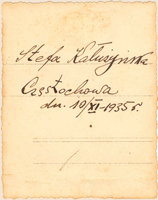 Stefa Kałuszyńska
Częstochowa
dn. 10/XI-1935 r.